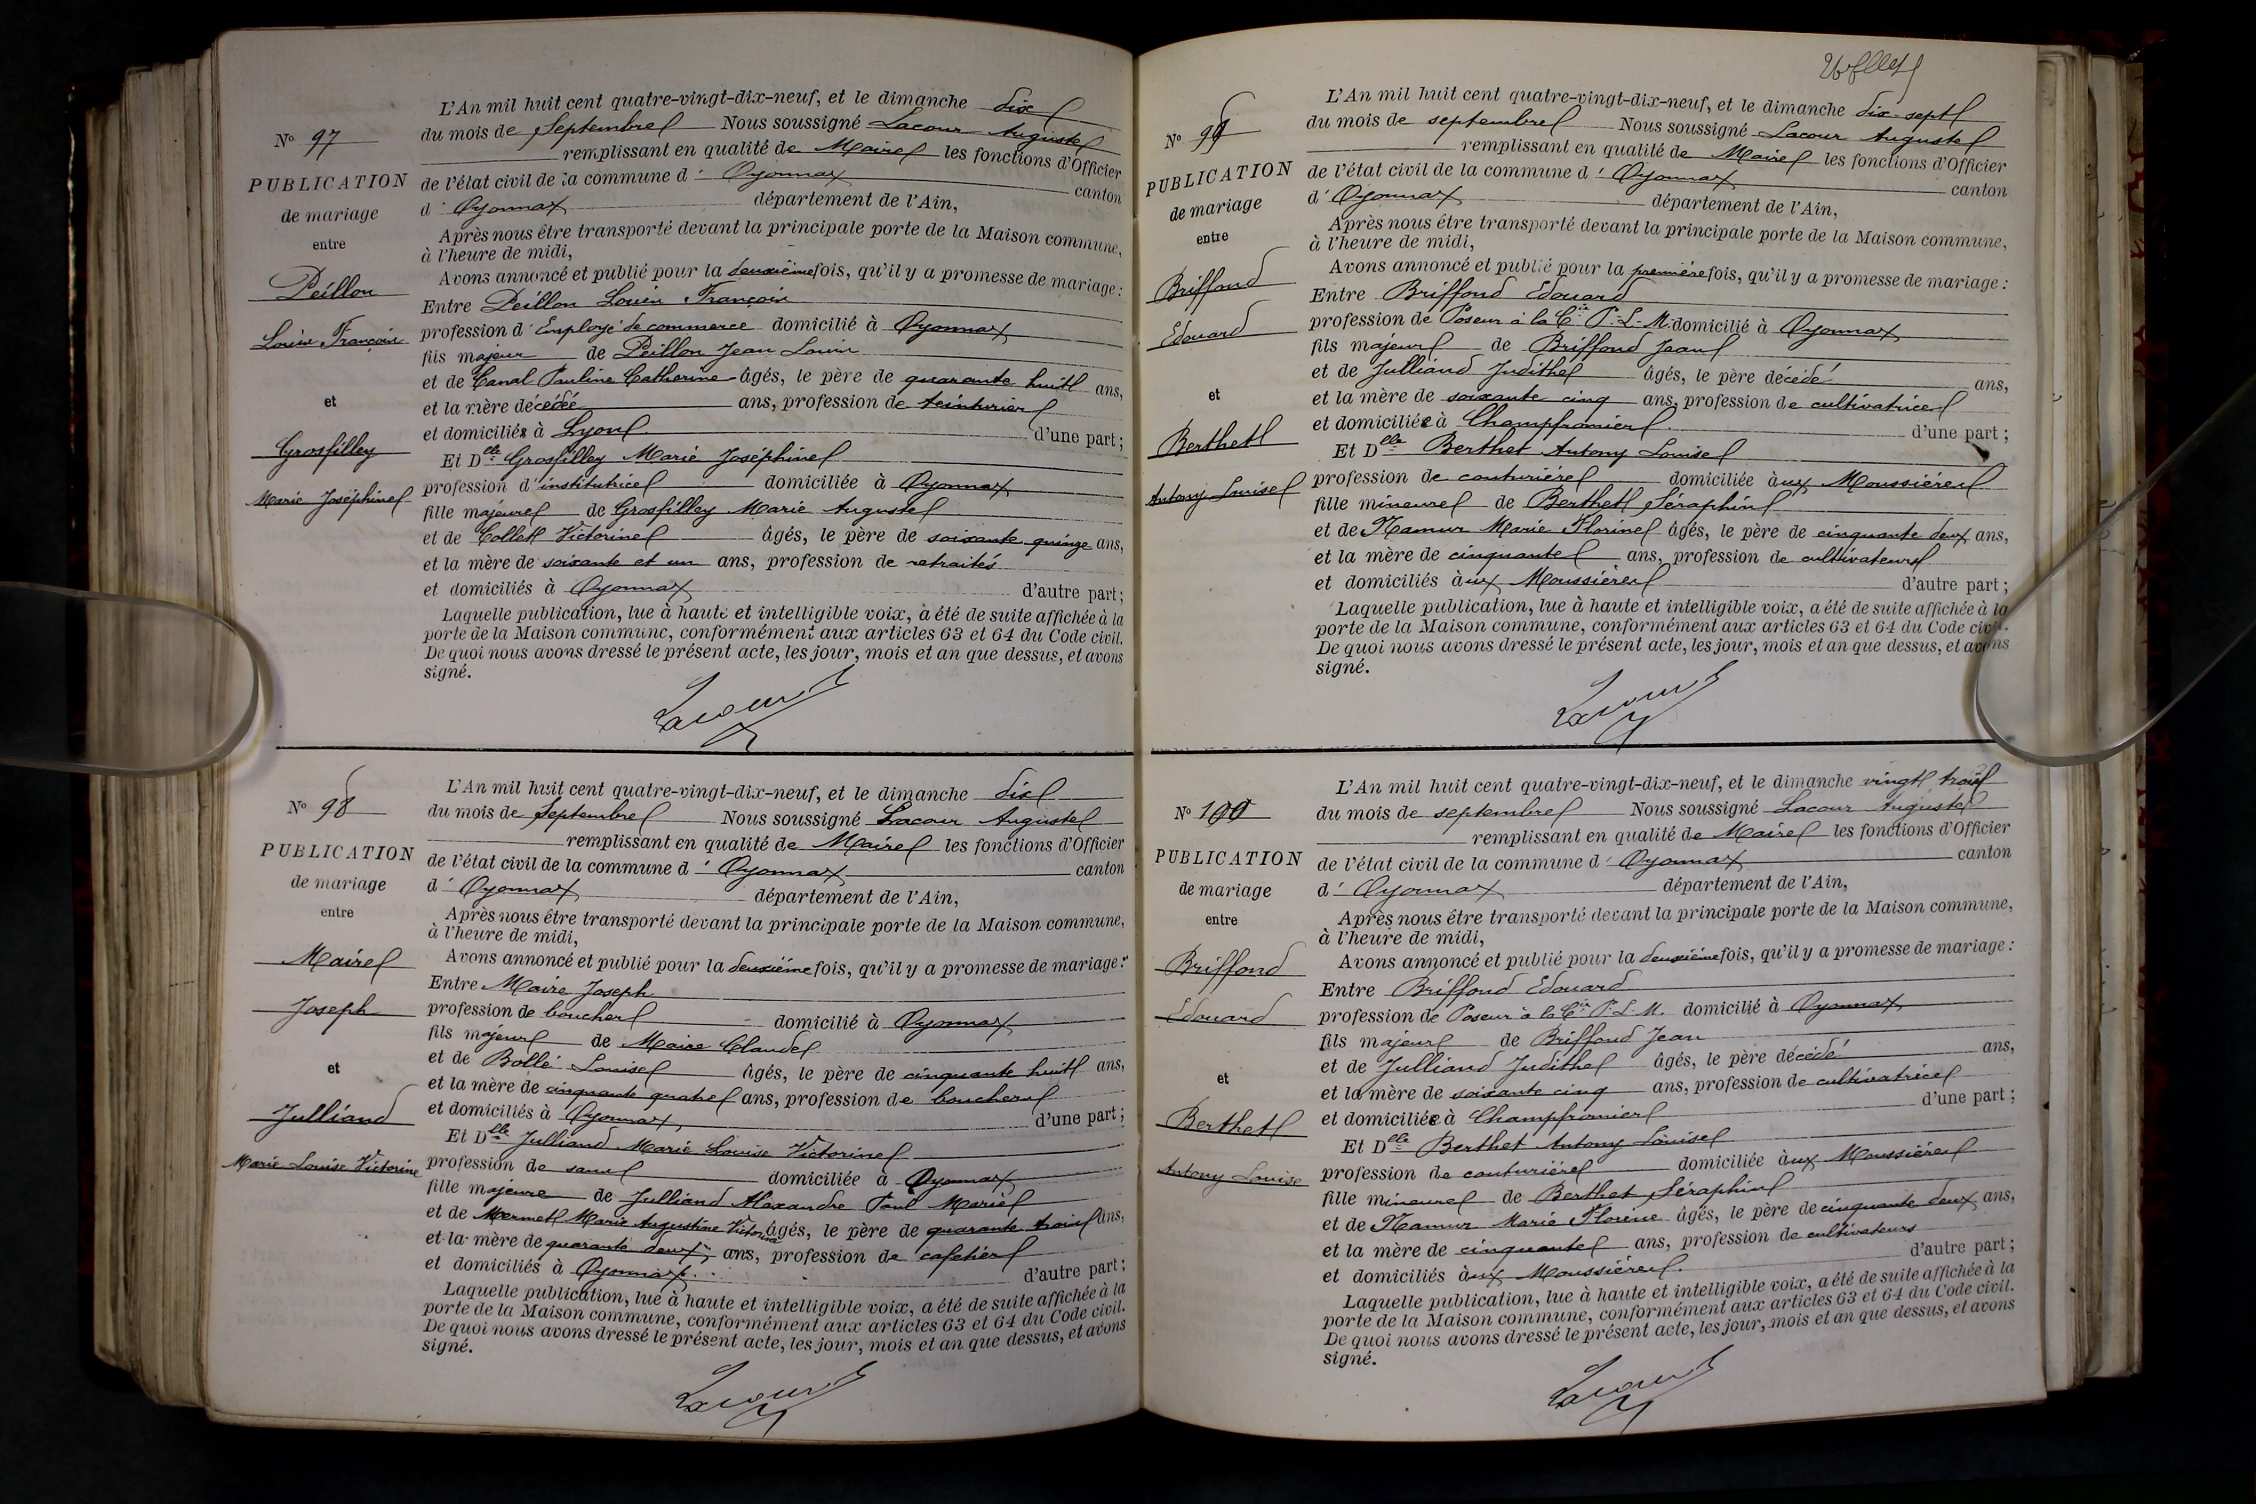 L'An mil huit cent quatre-vingt-dix-neuf, et le dimanche dix
N° 97
du mois de Septembre Nous soussigné Lacour Auguste
remplissant en qualité de Maire les fonctions d'Officier
PUBLICATION
de l'état civil de la commune d' Oyonnax canton
de mariage
d' Oyonnax département de l'Ain,
entre
Après nous être transporté devant la principale porte de la Maison commune,
à l'heure de midi,
Avons annoncé et publié pour la deuxième fois, qu'il y a promesse de mariage :
Peillon
Entre Peillon Louis François
Louis François
profession d' Employé de commerce domicilié à Oyonnax
fils majeur de Peillon Jean Louis
et de Canal Pauline Catherine âgés, le père de quarante huit ans,
et
et la mère décédée ans, profession de teinturier
et domiciliés à Lyon d'une part ;
Grosfilley
Et Dlle Grosfilley Marie Joséphine
Marie Joséphine
profession d' institutrice domiciliée à Oyonnax
fille majeure de Grosfilley Marie Auguste
et de Collet Victorine âgés, le père de soixante quinze ans,
et la mère de soixante et un ans, profession de retraités
et domiciliés à Oyonnax d'autre part ;
Laquelle publication, lue à haute et intelligible voix, a été de suite affichée à la
porte de la Maison commune, conformément aux articles 63 et 64 du Code civil.
De quoi nous avons dressé le présent acte, les jour, mois et an que dessus, et avons
signé.
Lacour
L'An mil huit cent quatre-vingt-dix-neuf, et le dimanche dix
N° 98
du mois de Septembre Nous soussigné Lacour Auguste
remplissant en qualité de Maire les fonctions d'Officier
PUBLICATION
de l'état civil de la commune d' Oyonnax canton
de mariage
d' Oyonnax département de l'Ain,
entre
Après nous être transporté devant la principale porte de la Maison commune,
à l'heure de midi,
Maire
Avons annoncé et publié pour la deuxième fois, qu'il y a promesse de mariage :
Entre Maire Joseph
Joseph
profession de boucher domicilié à Oyonnax
fils majeur de Maire Claude
et
et de Bollé Louise âgés, le père de cinquante huit ans,
et la mère de cinquante quatre ans, profession de bouchers
Julliand
et domiciliés à Oyonnax, d'une part ;
Et Dlle Julliand Marie Louise Victorine
Marie Louise Victorine
profession de sans domiciliée à Oyonnax
fille majeure de Julliand Alexandre Paul Marie
et de Mermet Marie Augustine Victorine âgés, le père de quarante trois ans,
et la mère de quarante deux ans, profession de cafetier
et domiciliés à Oyonnax. d'autre part ;
Laquelle publication, lue à haute et intelligible voix, a été de suite affichée à la
porte de la Maison commune, conformément aux articles 63 et 64 du Code civil.
De quoi nous avons dressé le présent acte, les jour, mois et an que dessus, et avons
signé.
Lacour
L'An mil huit cent quatre-vingt-dix-neuf, et le dimanche dix-sept
N° 99
du mois de septembre Nous soussigné Lacour Auguste
remplissant en qualité de Maire les fonctions d'Officier
PUBLICATION
de l'état civil de la commune d' Oyonnax canton
de mariage
d' Oyonnax département de l'Ain,
entre
Après nous être transporté devant la principale porte de la Maison commune,
à l'heure de midi,
Briffond
Avons annoncé et publié pour la première fois, qu'il y a promesse de mariage :
Entre Briffond Edouard
Edouard
profession de Poseur à la Cie P.-L.-M. domicilié à Oyonnax
fils majeur de Briffond Jean
et de Julliand Judithe âgés, le père décédé ans,
et
et la mère de soixante cinq ans, profession de cultivatrice
et domiciliée à Champfromier d'une part ;
Berthet
Et Dlle Berthet Antony Louise
Antony Louise
profession de couturière domiciliée aux Moussières
fille mineure de Berthet Séraphin
et de Namur Marie Florine âgés, le père de cinquante deux ans,
et la mère de cinquante ans, profession de cultivateurs
et domiciliés aux Moussières d'autre part ;
Laquelle publication, lue à haute et intelligible voix, a été de suite affichée à la
porte de la Maison commune, conformément aux articles 63 et 64 du Code civil.
De quoi nous avons dressé le présent acte, les jour, mois et an que dessus, et avons
signé.
Lacour
L'An mil huit cent quatre-vingt-dix-neuf, et le dimanche vingt trois
N° 100
du mois de septembre Nous soussigné Lacour Auguste
remplissant en qualité de Maire les fonctions d'Officier
PUBLICATION
de l'état civil de la commune d' Oyonnax canton
de mariage
d' Oyonnax département de l'Ain,
entre
Après nous être transporté devant la principale porte de la Maison commune,
à l'heure de midi,
Briffond
Avons annoncé et publié pour la deuxième fois, qu'il y a promesse de mariage :
Entre Briffond Edouard
Edouard
profession de Poseur à la Cie P.-L.-M. domicilié à Oyonnax
fils majeur de Briffond Jean
et de Julliand Judithe âgés, le père décédé ans,
et
et la mère de soixante cinq ans, profession de cultivatrice
Berthet
et domiciliée à Champfromier d'une part ;
Et Dlle Berthet Antony Louise
Antony Louise
profession de couturière domiciliée aux Moussières
fille mineure de Berthet Séraphin
et de Namur Marie Florine âgés, le père de cinquante deux ans,
et la mère de cinquante ans, profession de cultivateurs
et domiciliés aux Moussières. d'autre part ;
Laquelle publication, lue à haute et intelligible voix, a été de suite affichée à la
porte de la Maison commune, conformément aux articles 63 et 64 du Code civil.
De quoi nous avons dressé le présent acte, les jour, mois et an que dessus, et avons
signé.
Lacour